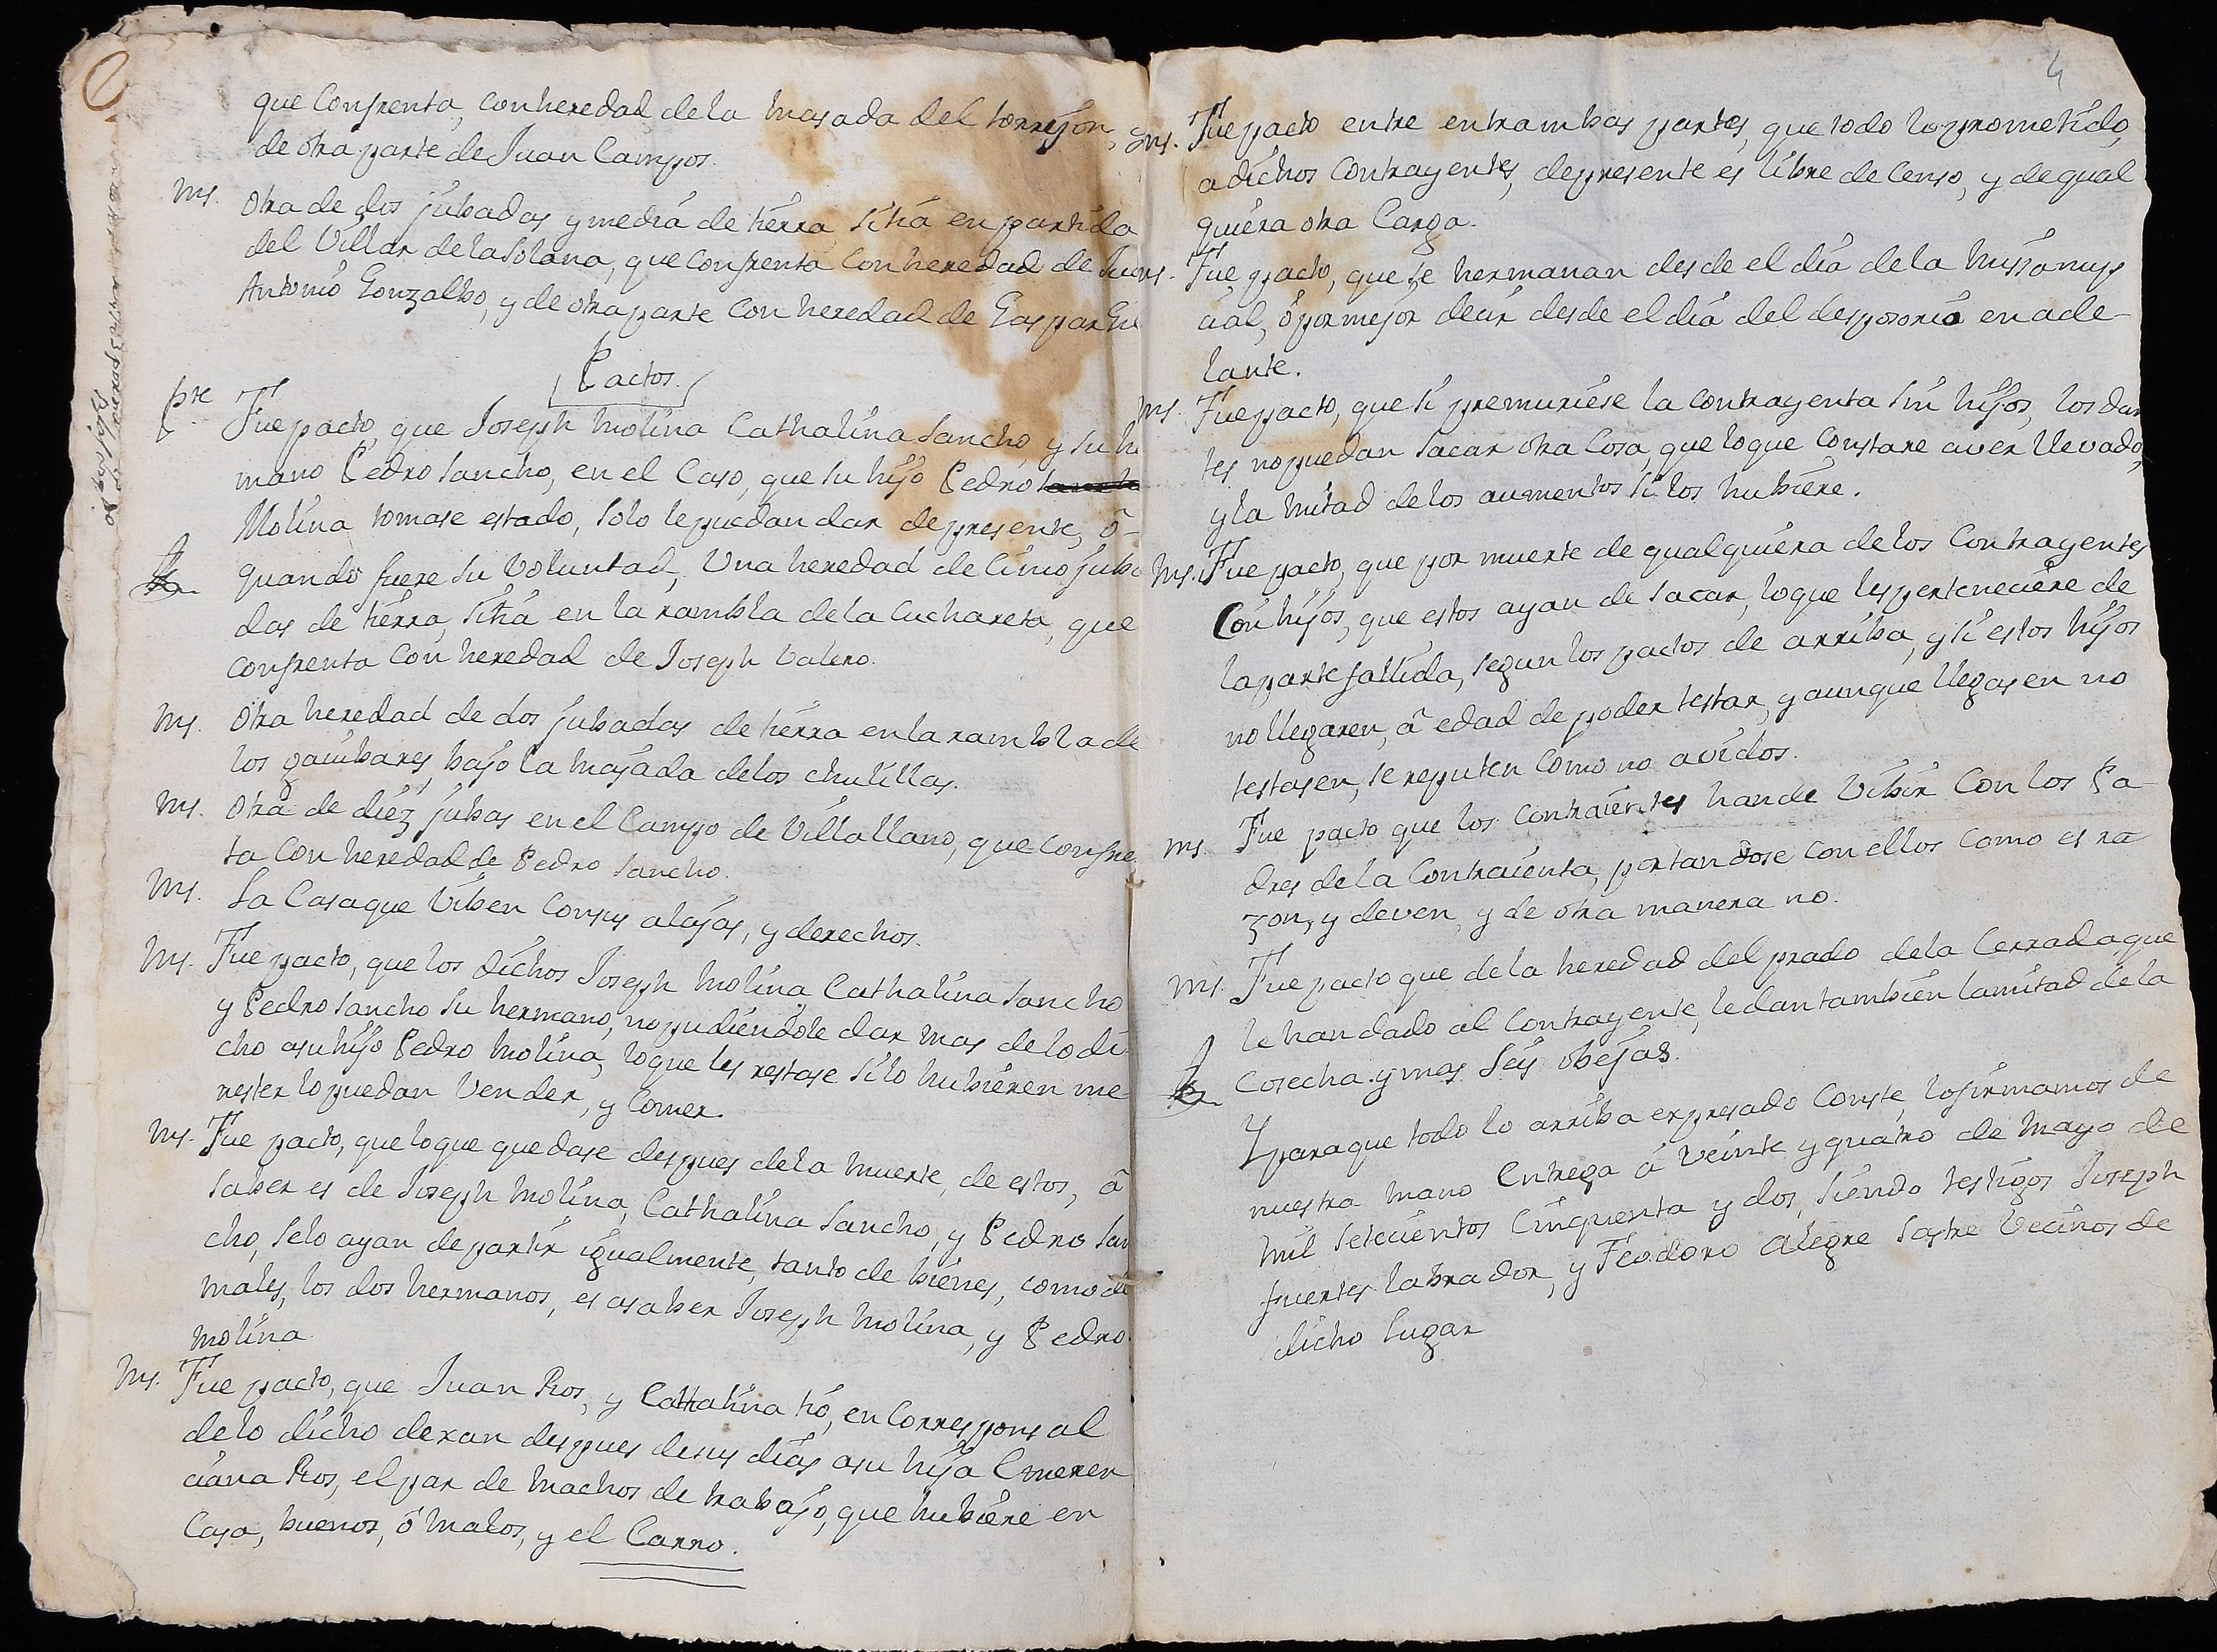 que Confrenta, con heredad de la masada del torrejon,
de otra parte de Juan Campos.
ms. Otra de dos jubadas y media de tierra sitia en partida
del Villar de la Solana, que Confrenta Con heredad de Juan
Antonio Gonzalbo, y de otra parte Con heredad de Gaspar
Pactos.
pre Fue pacto, que Joseph Molina Cathalina Sancho y su h
mano Pedro Sancho, en el Caso, que su hijo Pedro
Molina tomase estado, solo le puedan dar de presente, ô
quando fuere su Voluntad, Una heredad de Cinco juba
das de tierra, sitia en la rambla de la Cuchareta, que
confrenta Con heredad de Joseph Valero.
ms. Otra heredad de dos jubadas de tierra en la rambla de
los gambares, bajo la Masada de los chulillas.
ms. Otra de diez jubas en el Campo de Villallano, que Confre
ta Con heredad de Pedro Sancho.
ms. La Casa que Viben Con sus alajas, y derechos.
ms. Fue pacto, que los dichos Joseph Molina Cathalina Sancho
y Pedro Sancho su hermano, no pudiendole dar mas de lo di
cho a su hijo Pedro Molina, lo que les restase si lo hubieren me
nester lo puedan Vender, y Comer.
ms. Fue pacto, que lo que quedase despues de la muerte, de estos, â
saber es de Joseph Molina, Cathalina Sancho, y Pedro San
cho, se lo ayan de partir igualmente, tanto de bienes, como de
males, los dos hermanos, es asaber Joseph Molina, y Pedro
Molina
ms. Fue pacto, que Juan Ros, y Cathalina tio, en Corresponsal
de lo dicho dexan despues de sus dias a su hija Emeren
ciana Ros, el par de Machos de trabajo, que hubiere en
Casa, buenos, ô Malos, y el Carro.
4
ms. Fue pacto entre entrambas partes, que todo lo prometido,
a dichos Contrayentes, de presente es libre de Censo, y de qual
quiera otra Carga.
ms. Fue pacto, que se hermanan desde el dia de la Missa nup
cial, ô por mejor decir desde el dia del desposorio en ade-
lante.
ms. Fue pacto, que si premuriese la contrayenta sin hijos, los dan
tes no puedan sacar otra Cosa, que lo que Constare aver llevado,
y la mitad de los aumentos si los hubiere.
ms. Fue pacto, que por muerte de qualquiera de los Contrayentes
Con hijos, que estos ayan de sacar, lo que les perteneciere de
la parte fallida, segun los pactos de arriba, y si estos hijos
no llegaren, â edad de poder testar, y aunque llegasen no
testasen, se reputen Como no avidos.
ms. Fue pacto que los Contraientes han de Vibir Con los Pa-
dres de la Contraienta, portandose con ellos Como es ra
zon, y deven, y de otra manera no.
ms. Fue pacto que de la heredad del prado de la Cerrada, que
le han dado al Contrayente, le dan tambien la mitad de la
Cosecha. y mas seis obejas.
Y para que todo lo arriba expresado Conste, lo firmamos de
nuestra Mano Entrega â Veinte y quatro de Mayo de
Mil Setecientos Cinquenta y dos, siendo testigos Joseph
fuertes labrador, y Teodoro Alegre Sastre Vecinos de
dicho lugar